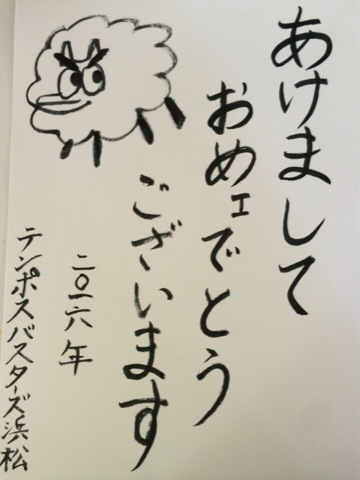 あけまして
おめェでとう
ございます
二〇一六年
テンポスバスターズ浜松